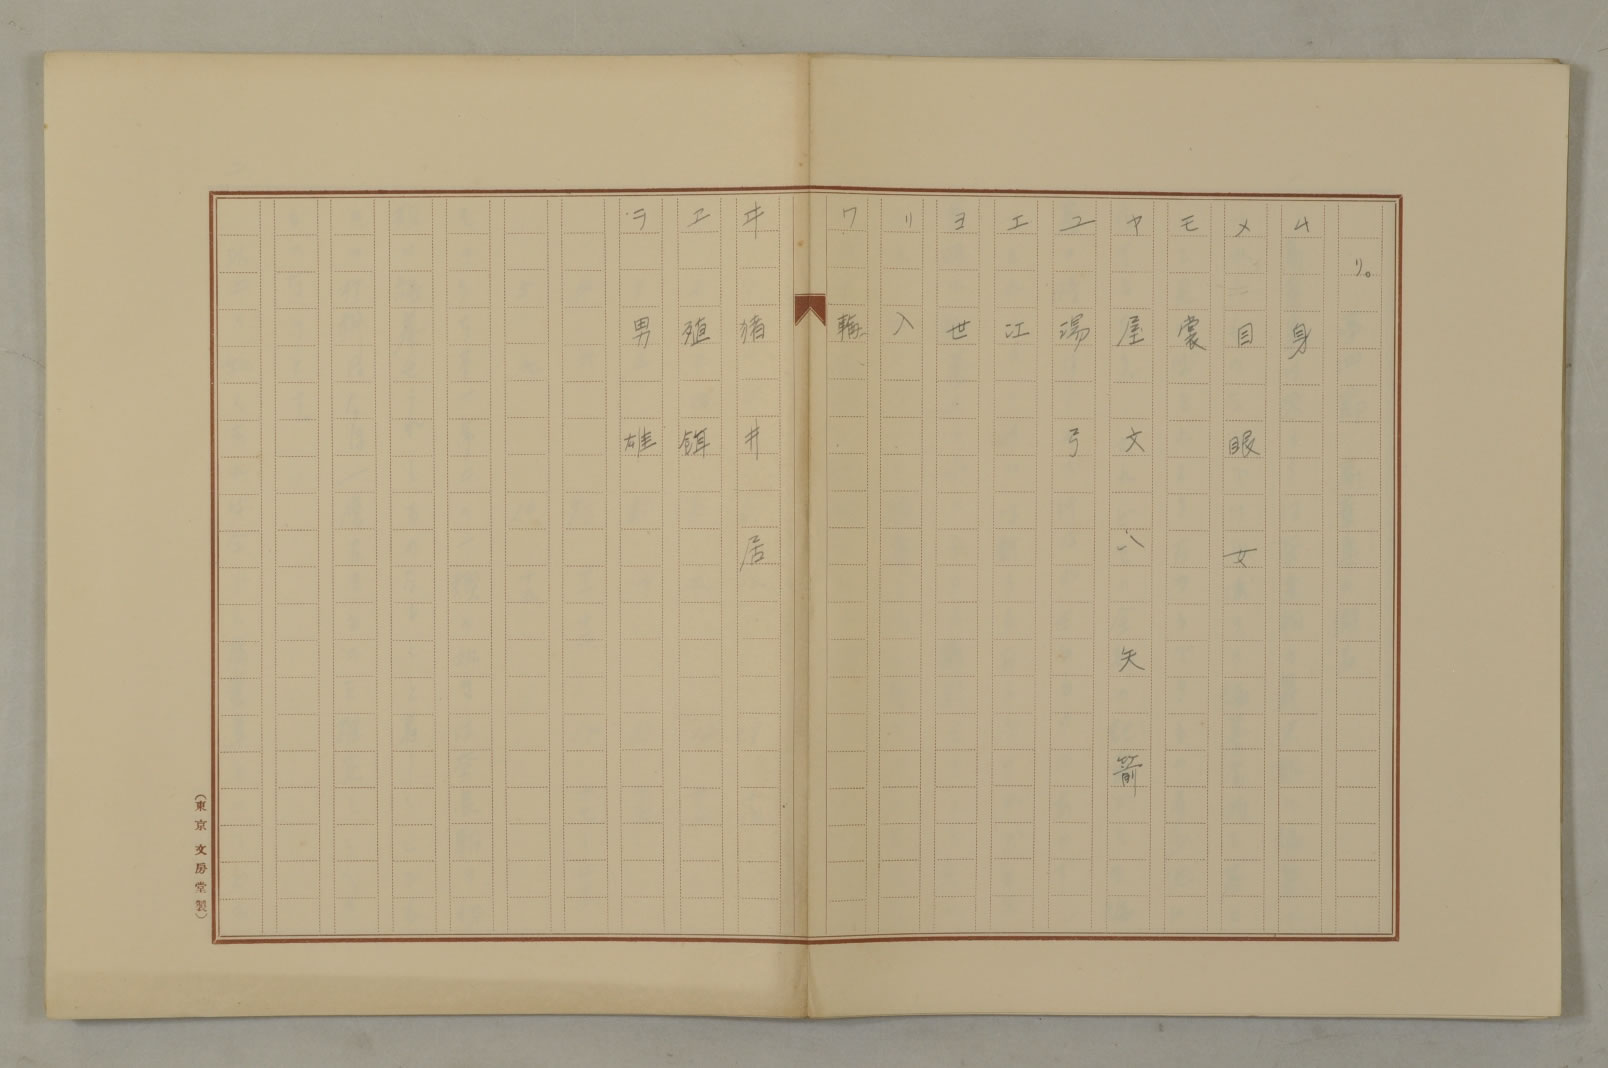 り。
ム 身
メ 目 眼 女
モ 裳
ヤ 屋 文 八 矢 箭
ユ 湯 弓
エ 江
ヨ 世
リ 入
ワ 輪
ヰ 猪 井 居
ヱ 殖 餌
ヲ 男 雄
(東京 文房堂製)